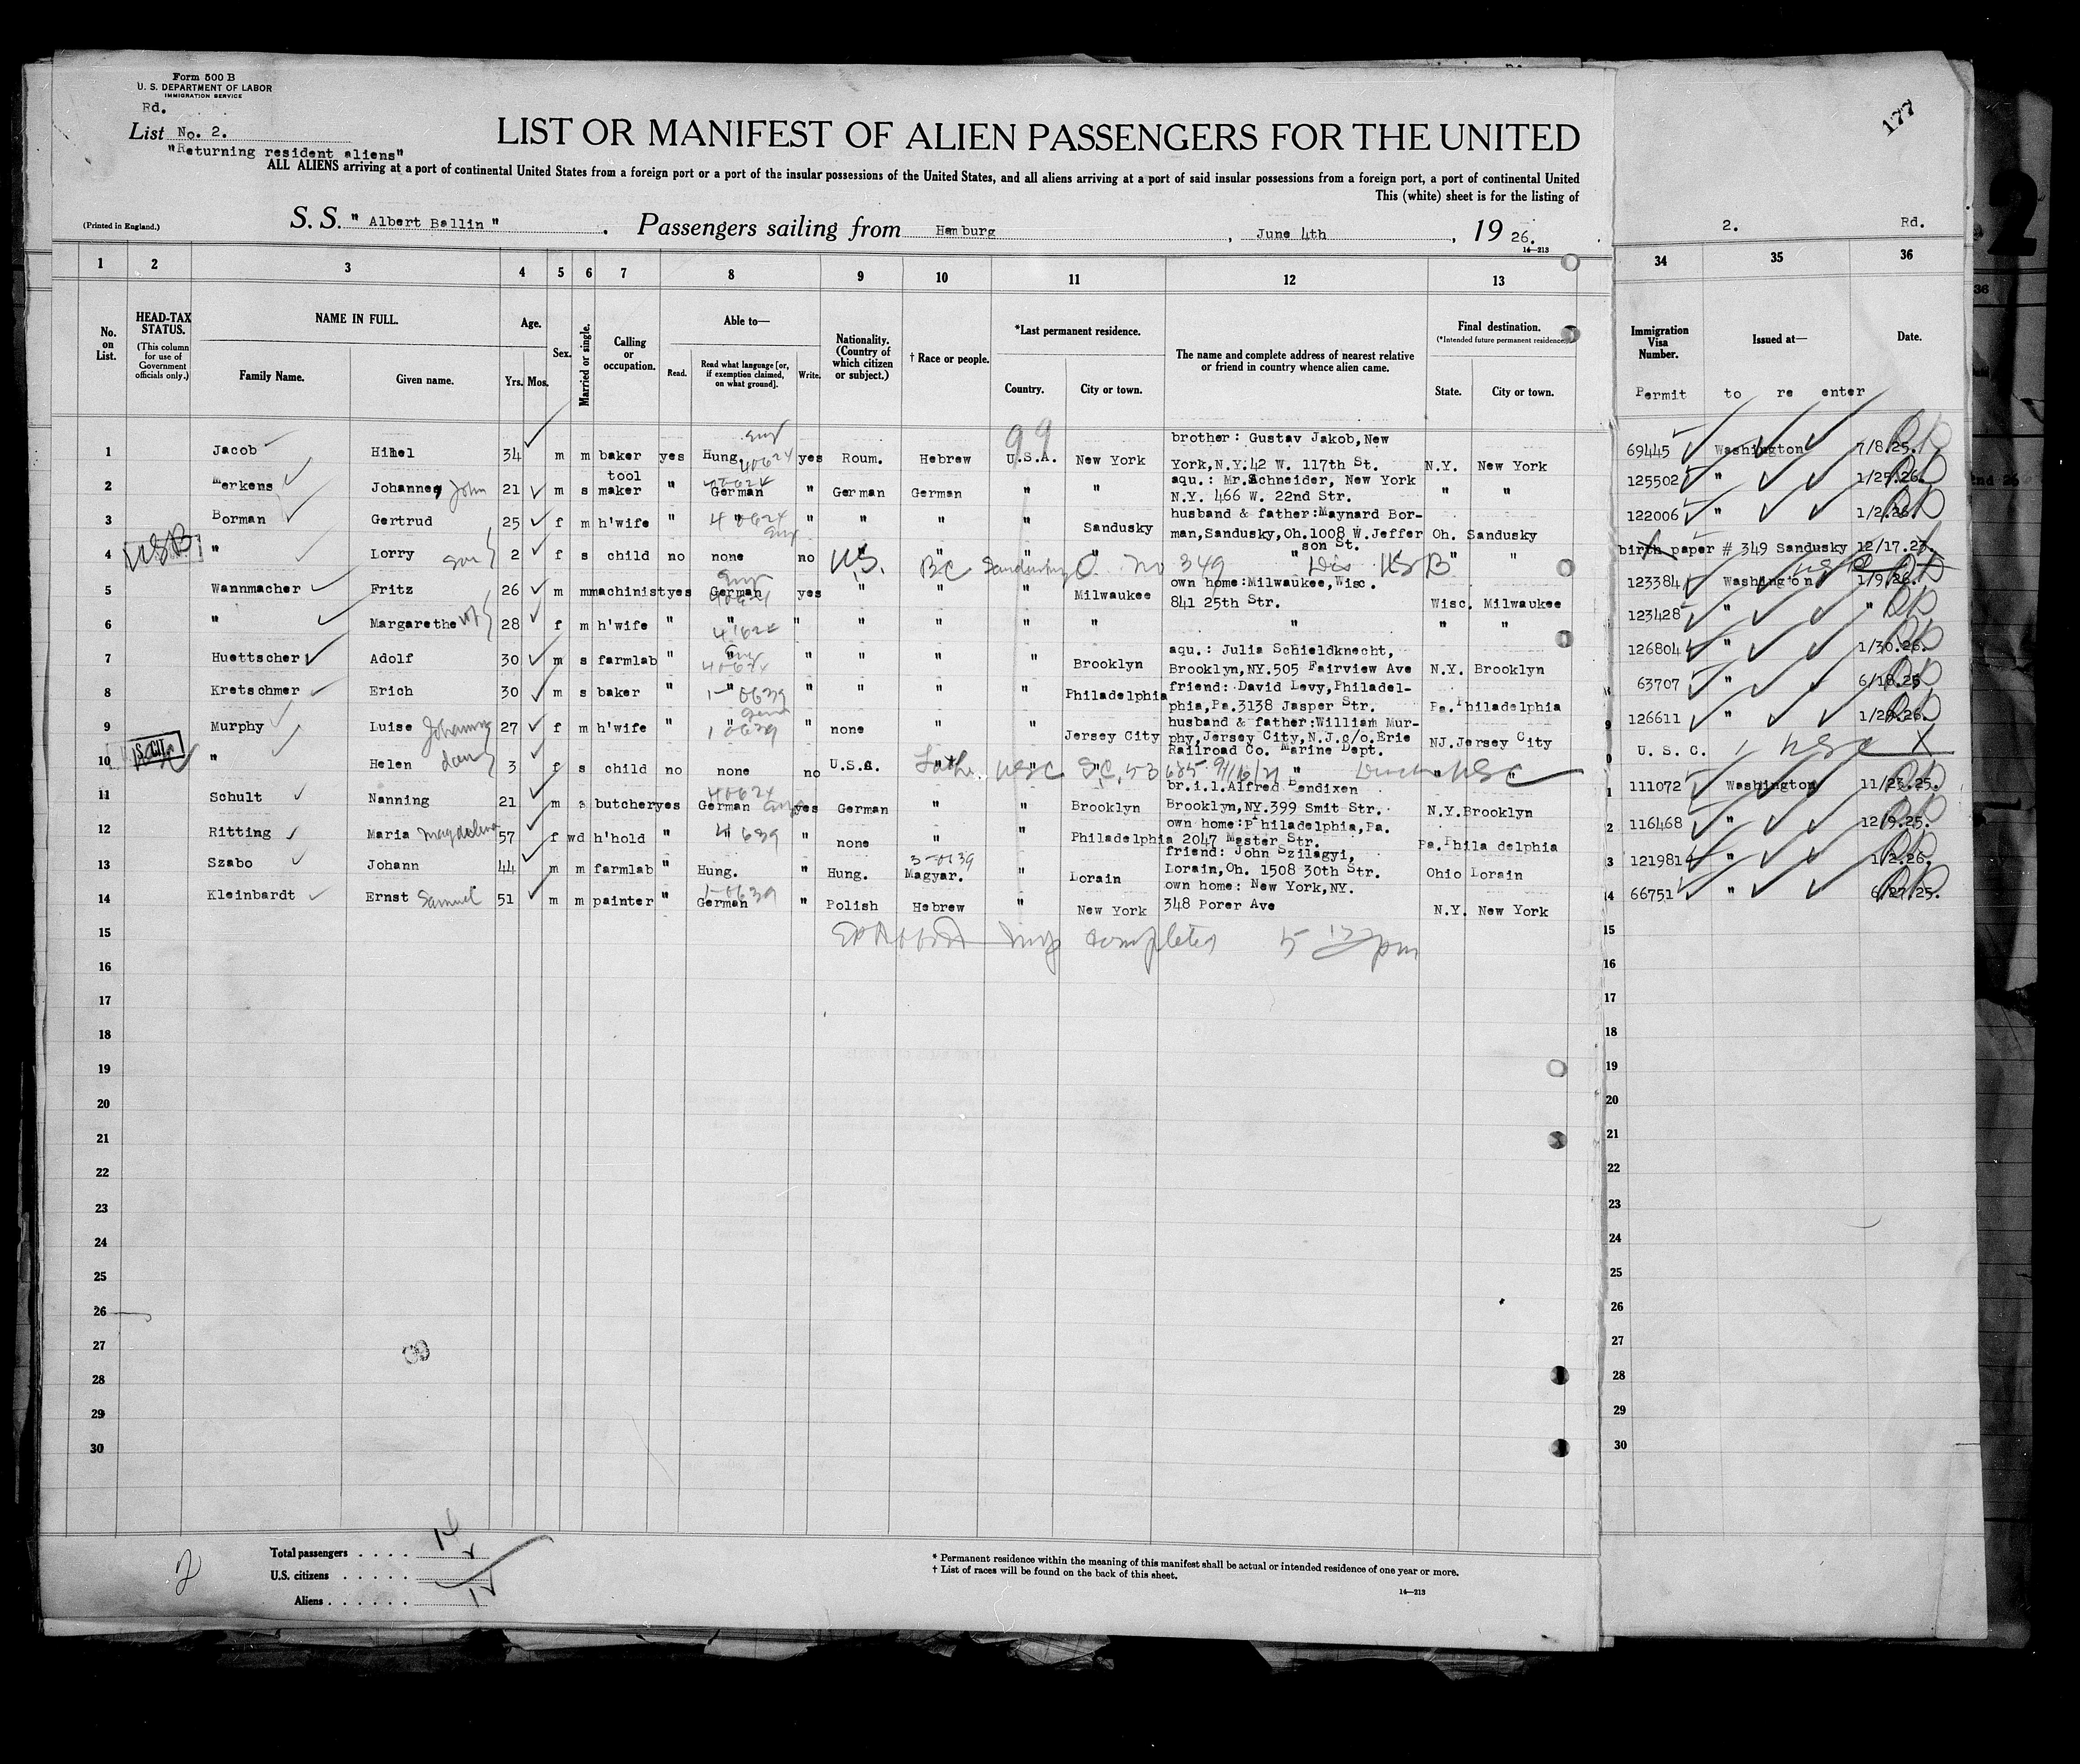 Form 500 B
U. S. DEPARTMENT OF LABOR
IMMIGRATION SERVICE
Rd.
List No. 2.
"Returning resident aliens"
177
LIST OR MANIFEST OF ALIEN PASSENGERS FOR THE UNITED
ALL ALIENS arriving at a port of continental United States from a foreign port or a port of the insular possessions of the United States, and all aliens arriving at a port of said insular possessions from a foreign port, a port of continental United
This (white) sheet is for the listing of
(Printed in England.)
S. S. "Albert Ballin". Passengers sailing from Hamburg, June 4th, 19 26.
14—213
2. Rd.
1 2 3 4 5 6 7 8 9 10 11 12 13 34 35 36
No. on List.
HEAD-TAX STATUS.
(This column for use of Government officials only.)
NAME IN FULL.
Family Name. Given name.
Age.
Yrs. Mos.
Sex.
Married or single.
Calling or occupation.
Able to—
Read. Read what language [or, if exemption claimed, on what ground]. Write.
Nationality. (Country of which citizen or subject.)
† Race or people.
*Last permanent residence.
Country. City or town.
The name and complete address of nearest relative or friend in country whence alien came.
Final destination.
(*Intended future permanent residence.)
State. City or town.
Immigration Visa Number. Issued at— Date.
Permit to re enter
99
1 Jacob Himel 34 m m baker yes Hung. Eng 40624 yes Roum. Hebrew U.S.A. New York brother: Gustav Jakob, New York, N.Y. 42 W. 117th St. N.Y. New York 69445 Washington 7/8.25.
2 Merkens Johannes John 21 m s tool maker " German " German German " " aqu.: Mr.Schneider, New York N.Y. 466 W. 22nd Str. " " 125502 " 1/25.26.
3 Borman Gertrud 25 f m h'wife " " 40624 Eng " " " " Sandusky husband & father: Maynard Borman, Sandusky, Oh. 1008 W. Jefferson St. Oh. Sandusky 122006 " 1/2.26.
4 USB " Lorry 2 f s child no none no U.S. " " " " " " BC Sandusky O. No 349 USB birth paper # 349 Sandusky 12/17.23.
5 Wannmacher Fritz 26 m m machinist yes German Eng yes " " " Milwaukee own home: Milwaukee, Wisc. 841 25th Str. Wisc. Milwaukee 123384 Washington 1/9.26.
6 " Margarethe 28 f m h'wife " " " " " " " " " " 123428 " "
7 Huettscher Adolf 30 m s farmlab " " Eng 40624 " " " " Brooklyn aqu.: Julia Schieldknecht, Brooklyn, NY. 505 Fairview Ave N.Y. Brooklyn 126804 " 1/30.26.
8 Kretschmer Erich 30 m s baker " " " " " " Philadelphia friend: David Levy, Philadelphia, Pa. 3138 Jasper Str. Pa. Philadelphia 63707 " 6/18.25
9 Murphy Luise Johanna 27 f m h'wife " " " none " " Jersey City husband & father: William Murphy, Jersey City, N.J. c/o. Erie Railroad Co. Marine Dept. NJ. Jersey City 126611 " 1/29.26.
10 S. CIT. " Helen 3 f s child no none no U.S.A. " " " " " " USC U. S. C. USC
11 Schult Nanning 21 m s butcher yes German 40624 yes German " " Brooklyn br.i.l. Alfred Bendixen Brooklyn, NY. 399 Smit Str. N.Y. Brooklyn 111072 Washington 11/23.25.
12 Ritting Maria Magdalena 57 f wd h'hold " " " none " " Philadelphia own home: Philadelphia, Pa. 2047 Master Str. Pa. Philadelphia 116468 " 12/9.25.
13 Szabo Johann 44 m m farmlab " Hung. " Hung. Magyar. " Lorain friend: John Szilagyi, Lorain, Oh. 1508 30th Str. Ohio Lorain 121981 " 1/2.26.
14 Kleinbardt Ernst Samuel 51 m m painter " German " Polish Hebrew " New York own home: New York, NY. 348 Porer Ave N.Y. New York 66751 " 6/27.25.
15 completed 5 pm
16
17
18
19
20
21
22
23
24
25
26
27
28
29
30
2
Total passengers . . . . 14
U.S. citizens . . . . . 2
Aliens . . . . . . 12
* Permanent residence within the meaning of this manifest shall be actual or intended residence of one year or more.
† List of races will be found on the back of this sheet.
14—213